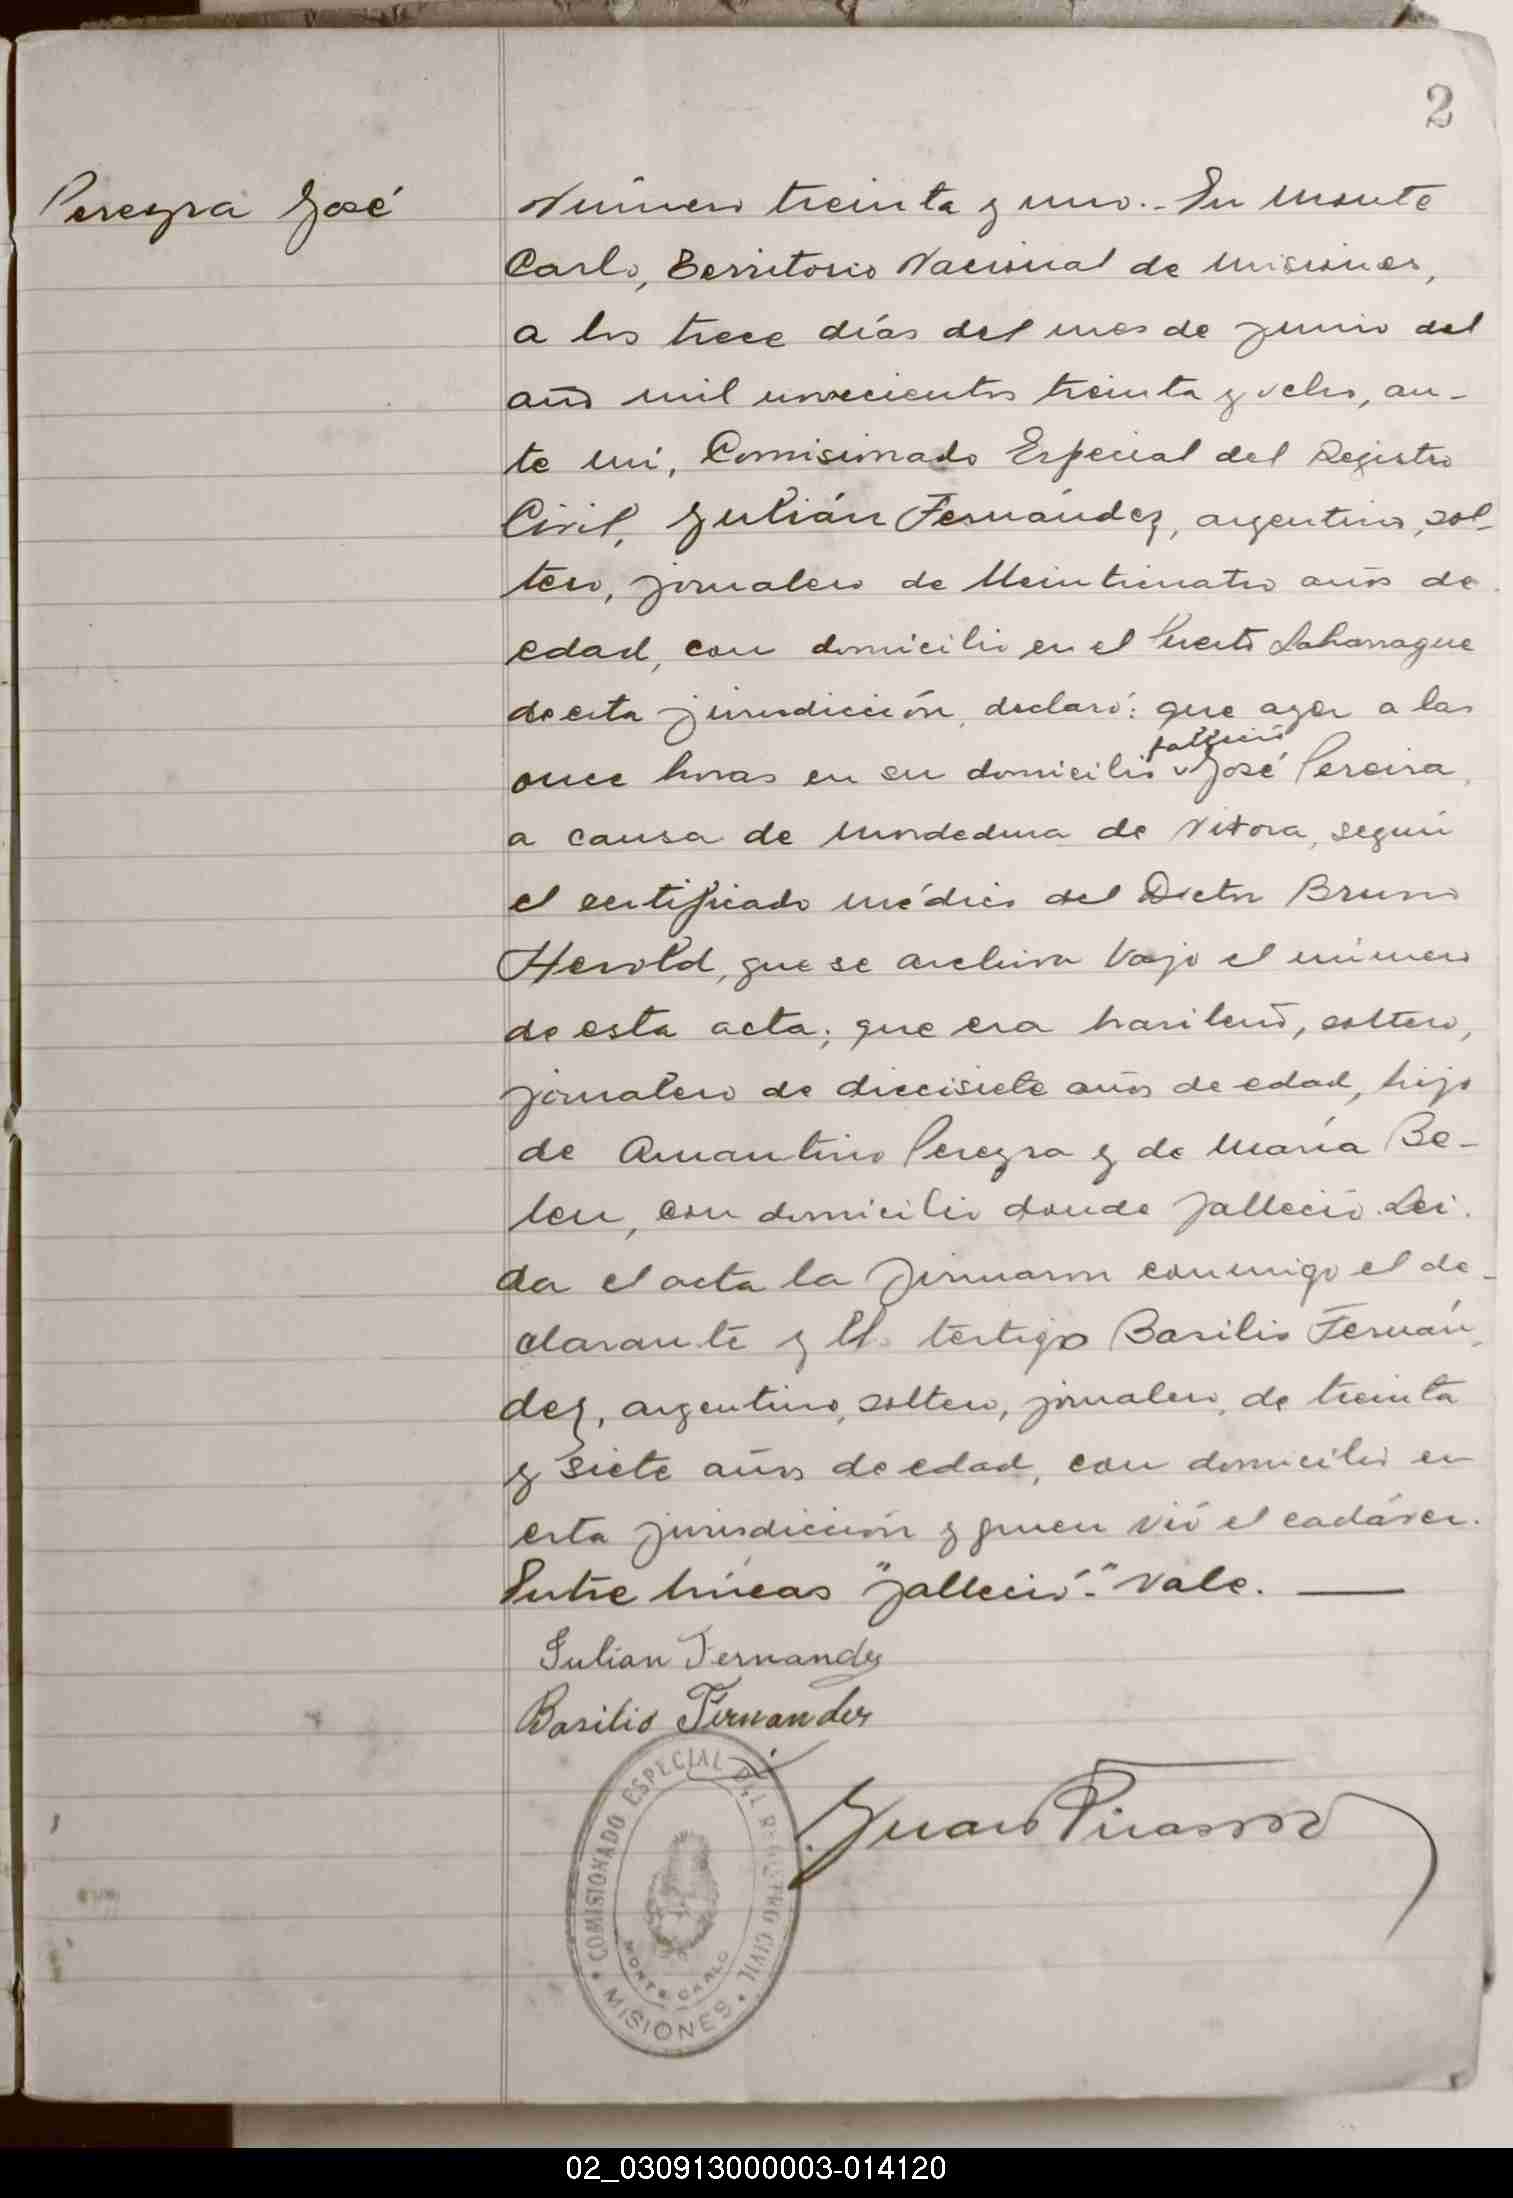 2
Pereyra José
Número treinta y uno.- En Monte
Carlo, Territorio Nacional de Misiones,
a los trece días del mes de junio del
año mil novecientos treinta y ocho, an-
te mí, Comisionado Especial del Registro
Civil, Julián Fernández, argentino, sol-
tero, jornalero de veinticuatro años de
edad, con domicilio en el Puerto Laharrague
de esta jurisdicción, declaró: que ayer a las
falleció
once horas en su domicilio José Pereira,
a causa de mordedura de vívora, según
el certificado médico del Doctor Bruno
Herold, que se archiva bajo el número
de esta acta; que era brasileño, soltero,
jornalero de diecisiete años de edad, hijo
de Amantino Pereyra y de María Be-
len, con domicilio donde falleció. Leí-
da el acta la firmaron conmigo el de-
clarante y el testigo Basilio Fernán-
dez, argentino, soltero, jornalero, de treinta
y siete años de edad, con domicilio en
esta jurisdicción y quien vió el cadáver.
Entre líneas "falleció". Vale.
Julian Fernandez
Basilio Fernandez
Juan Picasso
COMISIONADO ESPECIAL DEL REGISTRO CIVIL
MONTE CARLO
MISIONES
02_030913000003-014120